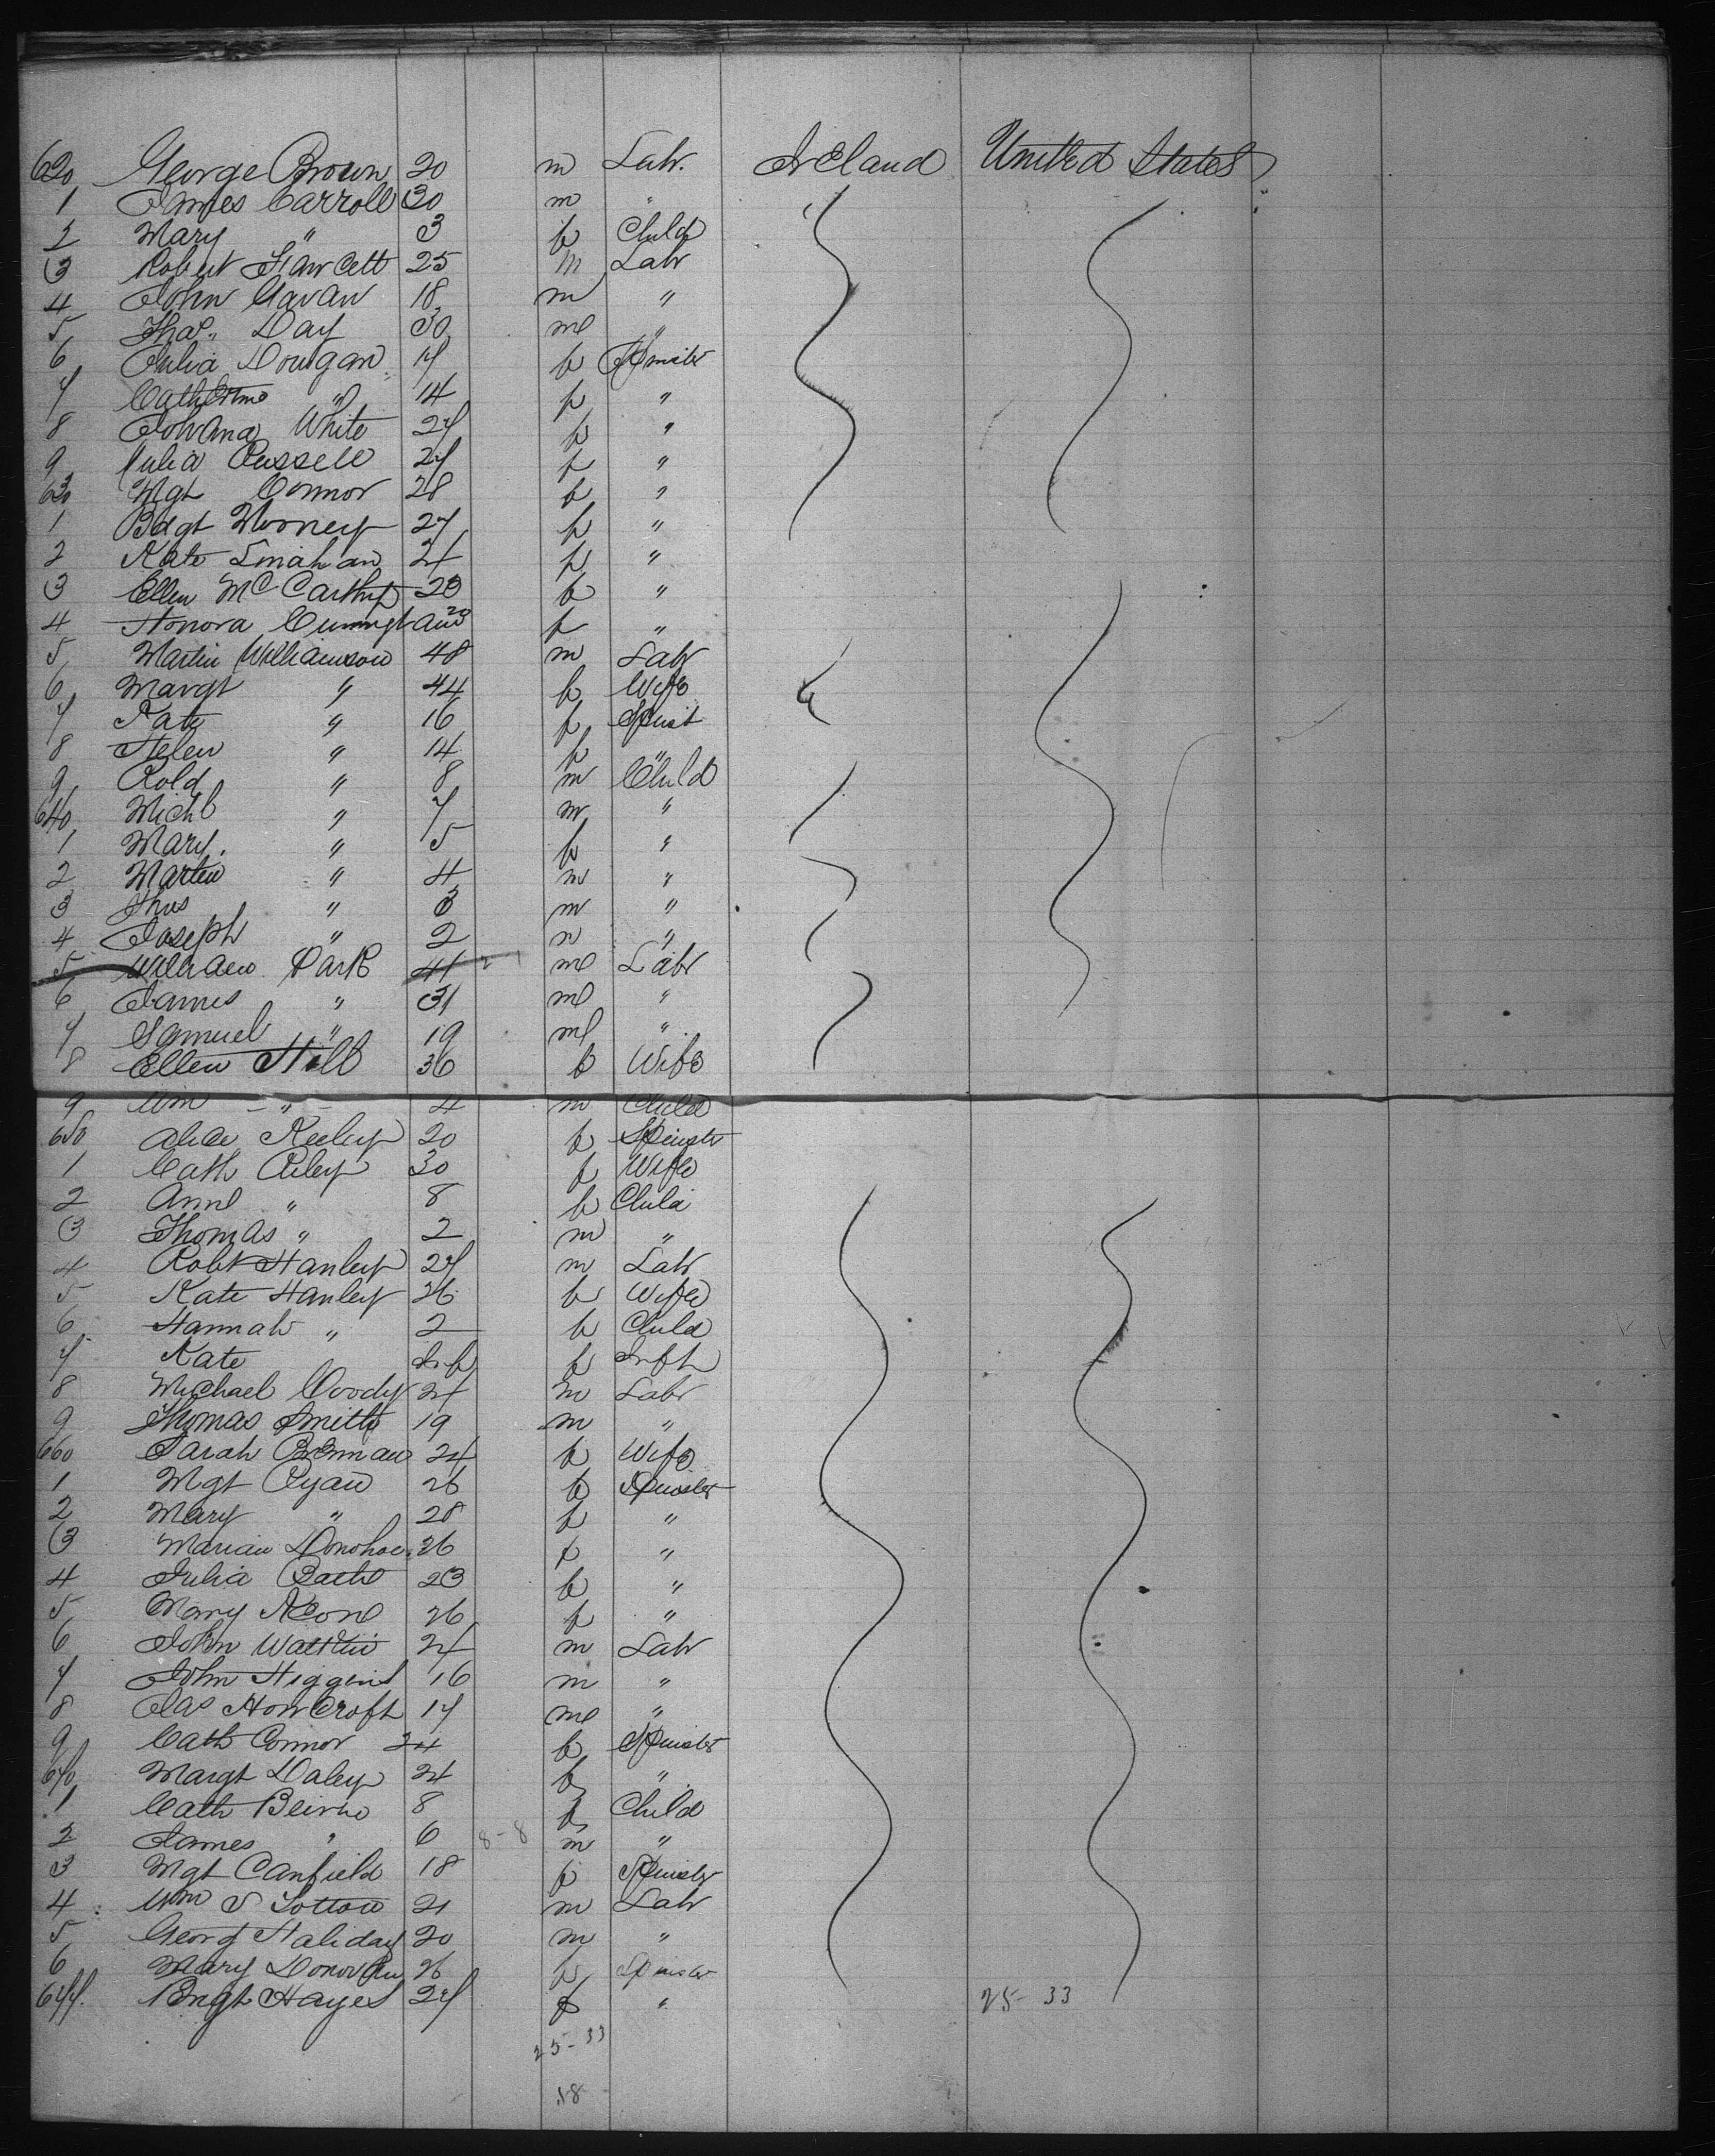 620 George Brown 20 m Labr. Ireland United States
1 James Carroll 30 m "
2 Mary " 3 f Child
3 Robert Fawcett 25 m Labr
4 John Gavan 18 m "
5 Thos. Day 30 m "
6 Julia Dougan 17 f Spinster
7 Catherine " 14 f "
8 Johana White 27 f "
9 Julia Russell 27 f "
630 Mgt Connor 28 f "
1 Bdgt 27 f "
2 Kate 24 f "
3 Ellen McCarthy 20 f "
4 Honora 20 f "
5 Martin Williamson 48 m Labr
6 Margt " 44 f Wife
7 Kate " 16 f Spinst
8 Helen " 14 f "
9 " 8 m Child
640 Michl " 7 m "
1 Mary. " 5 f "
2 Martin " 4 m "
3 Thos " 3 m "
4 Joseph " 2 m "
5 William Park 41 m Labr
6 James " 31 m "
7 Samuel " 19 m "
8 Ellen Hill 36 f Wife
9 Wm " 4 m Child
650 Alice Keeley 20 f Spinster
1 Cath Riley 30 f Wife
2 Anne " 8 f Child
3 Thomas " 2 m "
4 Robt Hanley 27 m Labr
5 Kate Hanley 26 f Wife
6 Hannah " 2 f Child
7 Kate Inf f Inft
8 Michael Coody 24 m Labr
9 Thomas Smith 19 m "
660 Sarah Brennan 24 f Wife
1 Mgt Ryan 26 f Spinster
2 Mary " 28 f "
3 Marian Donohoe 26 f "
4 Julia 23 f "
5 Mary 26 f "
6 John 24 m Labr
7 John Higgins 16 m "
8 Jas Howcroft 17 m "
9 Cath Connor 24 f Spinster
670 Margt Daley 24 f "
1 Cath Beirne 8 f Child
2 James " 6 8-8 m "
3 Mgt Canfield 18 f Spinster
4 Wm S 21 m Labr
5 Georg Haliday 20 m "
6 Mary Donovan 26 f Spinster
677. Brigt Hayes 27 f " 25-33
25-33
58